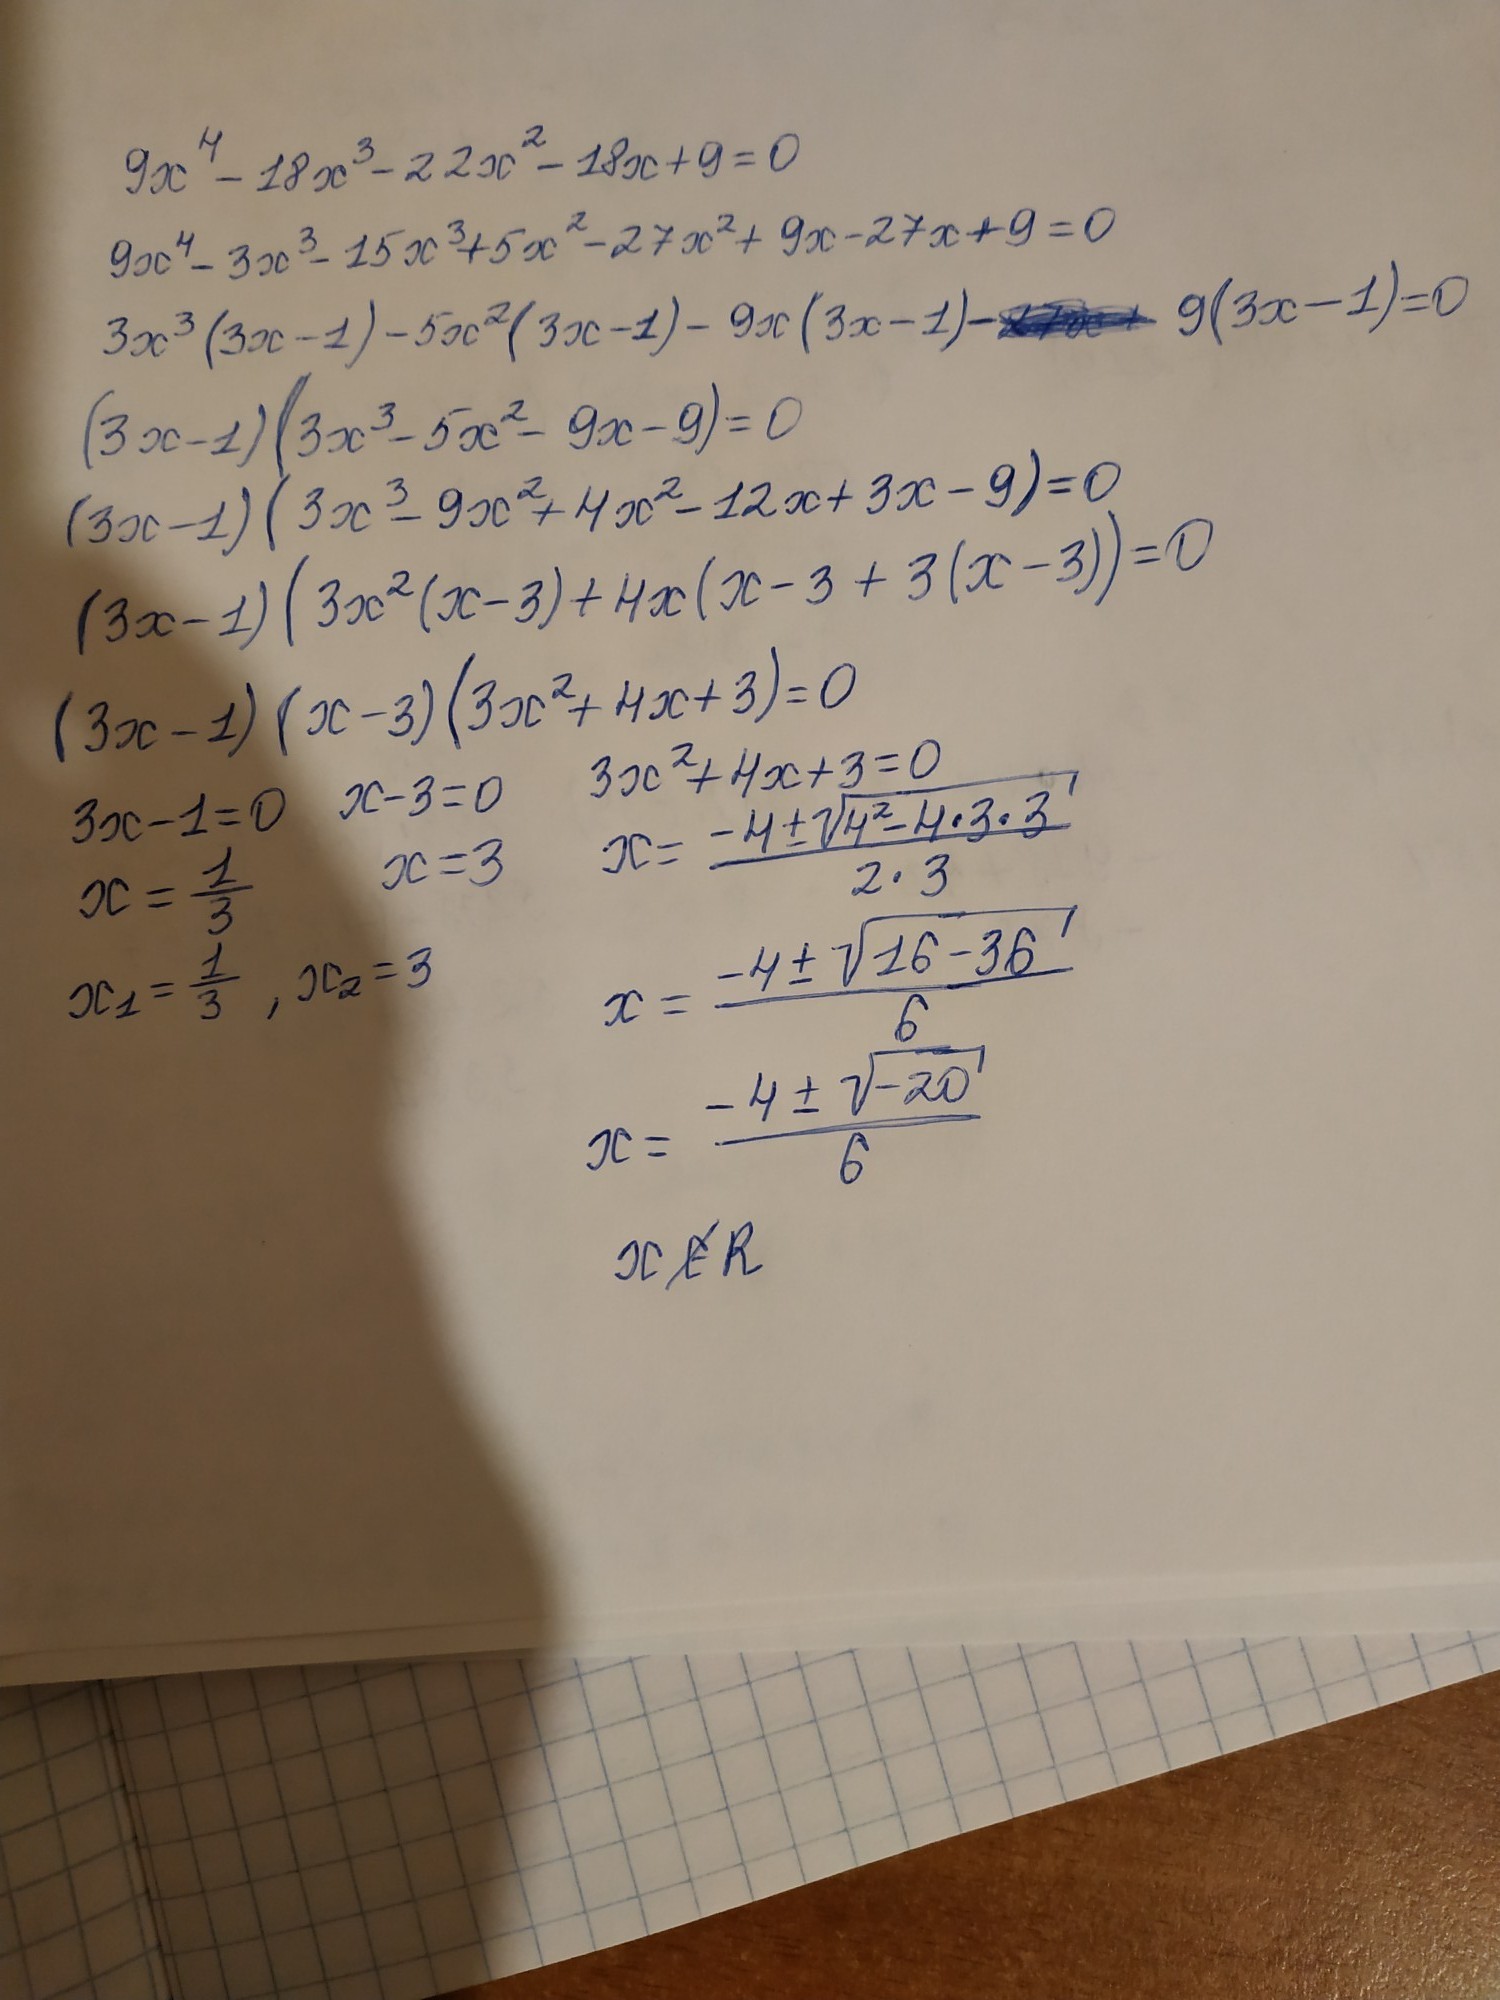 9x⁴-18x³-22x²-18x+9=0
9x⁴-3x³-15x³+5x²-27x²+9x-27x+9=0
3x³(3x-1)-5x²(3x-1)-9x(3x-1)- 9(3x-1)=0
(3x-1)(3x³-5x²-9x-9)=0
(3x-1)(3x³-9x²+4x²-12x+3x-9)=0
(3x-1)(3x²(x-3)+4x(x-3+3(x-3))=0
(3x-1)(x-3)(3x²+4x+3)=0
3x-1=0 x-3=0 3x²+4x+3=0
x=1/3 x=3 x=(-4±√(4²-4·3·3))/(2·3)
x₁=1/3, x₂=3 x=(-4±√(16-36))/6
x=(-4±√(-20))/6
x∉R